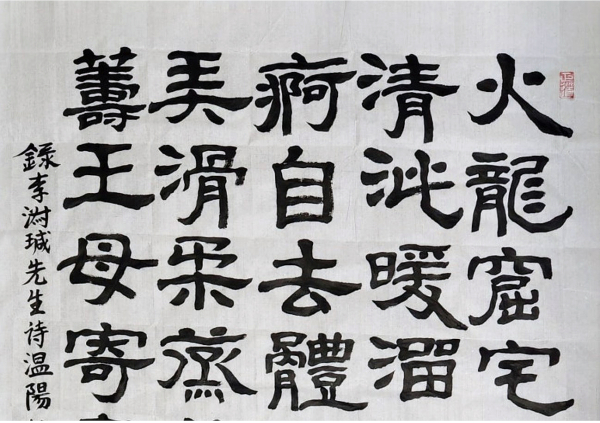 火龍窟宅
清泚暖溜
痾自去體
美滑柔蒸
籌王母寄
録李澍瑊先生诗温陽